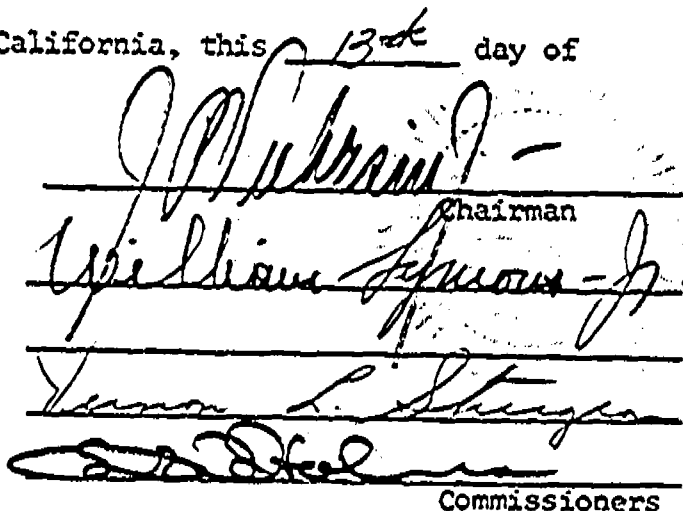 California, this 13th day of
Chairman
William Symons-Jr
Vernon L. Sturgeon
Commissioners